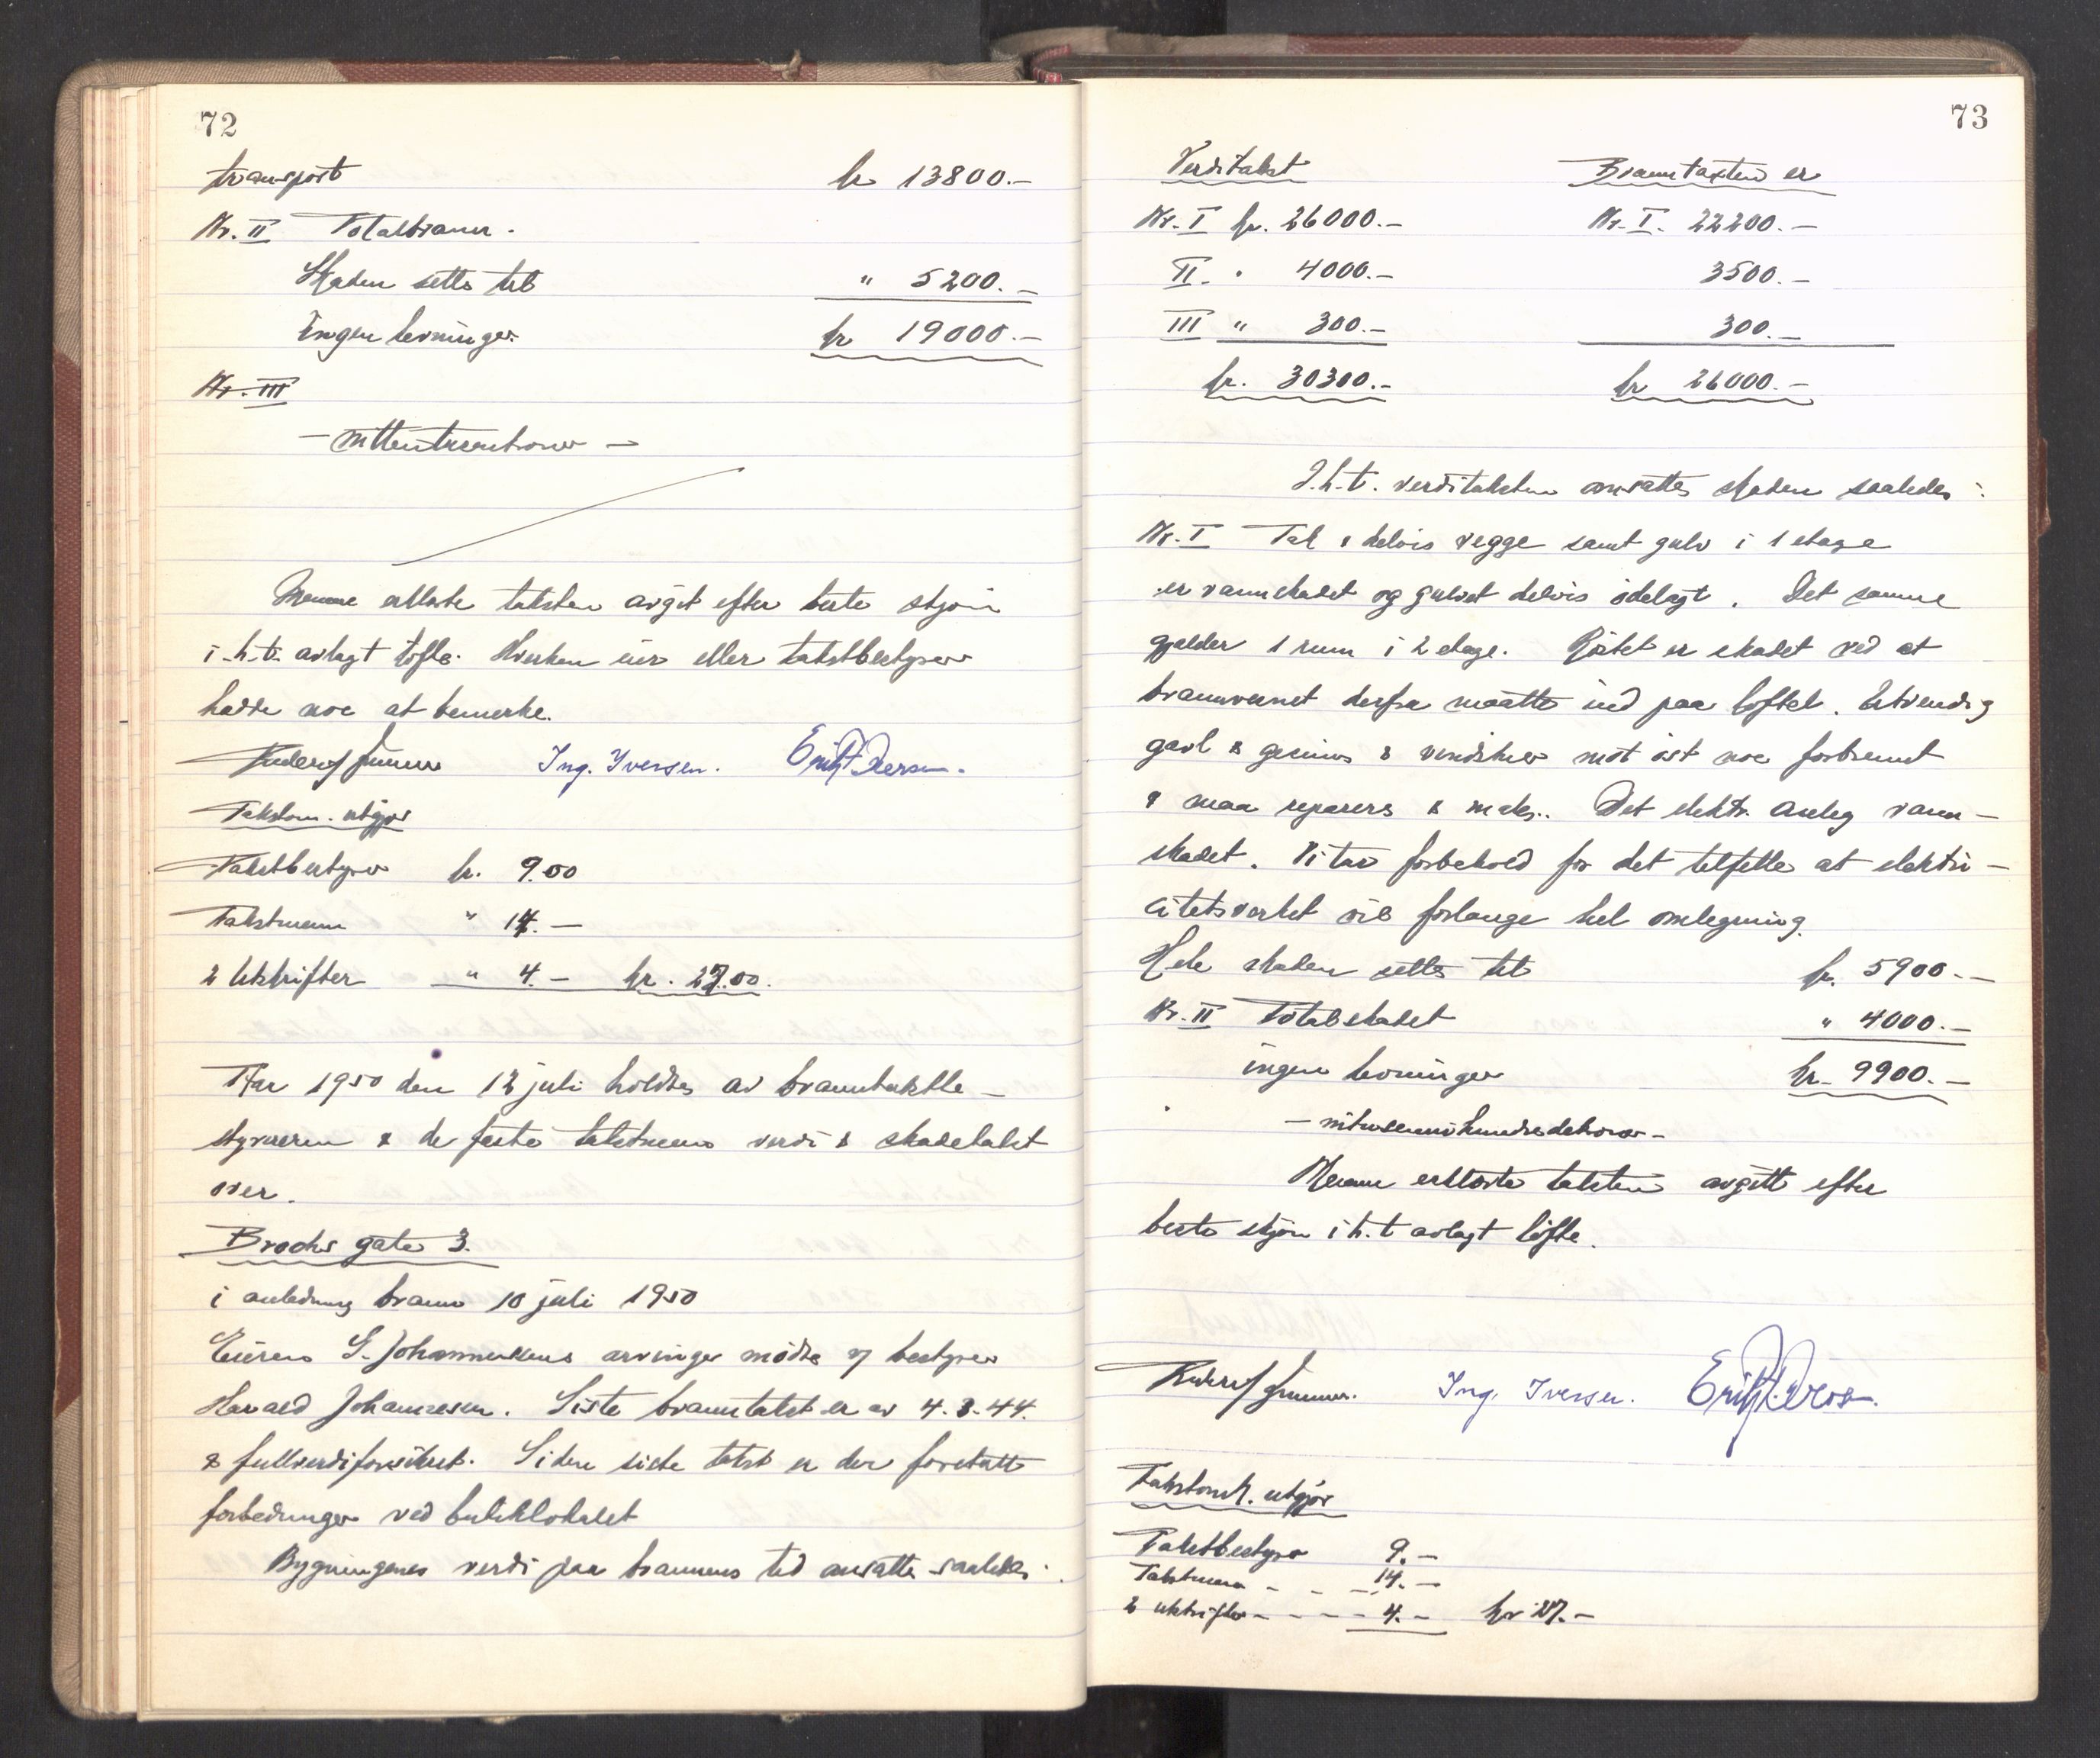 72
transport kr 13800.-
Nr. II Totalbrann.
Skaden settes til " 5200.-
Ingen levninger. kr 19000.-
Nr. III
- nittentusenkroner -
Mennene erklærte taksten avgit efter beste skjøn
i.h.t. avlagt løfte. Hverken eier eller takstbestyrer
hadde noe at bemerke.
Ing. Iversen.
Takstom. utgjør
Takstbestyrer kr. 9.00
Takstmenn " 14.-
2 Utskrifter " 4.- kr. 27.00.
Aar 1950 den 12 juli holdtes av branntakstbe-
styreren & de faste takstmenn verdi & skadetakst
over.
Brochs gate 3.
i anledning brann 10 juli 1950
Eieren G. Johannessens arvinger møtte v/ bestyrer
Harald Johannesen. Siste branntakst er av 4.3.44.
& fullverdiforsikret. Siden siste takst er der foretatt
forbedringer ved butiklokalet
Bygningenes verdi paa brannens tid ansattes saaledes:
73
Verditakst Branntaxten er
Nr. I kr. 26000.- Nr. I. 22200.-
II. " 4000.- 3500.-
III " 300.- 300.-
kr. 30300.- kr 26000.-
I.h.t. verditaksten ansattes skaden saaledes:
Nr. I Tak & delvis vegge samt gulv i 1 etage
er vannskadet og gulvet delvis ødelagt. Det samme
gjelder 1 rum i 2 etage. Røstet er skadet ved at
brannvernet derfra maatte ind paa loftet. Utvendig
gavl & gesims & vindskier mot øst noe forbrent
& maa repareres & males. Det elektr. anleg vann-
skadet. Vi tar forbehold for det tilfelle at elektri-
citetsverket vil forlange hel omlegning.
Hele skaden settes til kr. 5900.-
Nr. II Totalskadet " 4000.-
ingen levninger kr. 9900.-
- nitusennihundredekroner -
Mennene erklærte taksten avgitt efter
beste skjøn i h.t avlagt løfte.
Ing. Iversen.
Takstomk. utgjør
Takstbestyrer 9.-
Takstmenn - - - 14.-
2 utskrifter - - - - 4.- kr 27.-